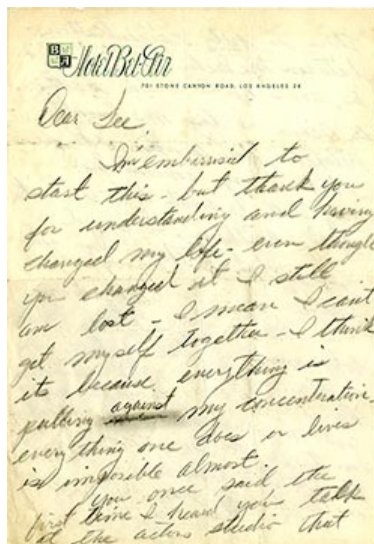 B
A
Hotel Bel-Air
701 STONE CANYON ROAD, LOS ANGELES 24
Dear Lee,
I'm embarrised to
start this - but thank you
for understanding and having
changed my life - even though
you changed it I still
am lost - I mean I can't
get myself together - I think
its because everything is
pulling against my concentration -
everything one does or lives
is impossible almost.
You once said the
first time I heard you talk
at the actors studio that